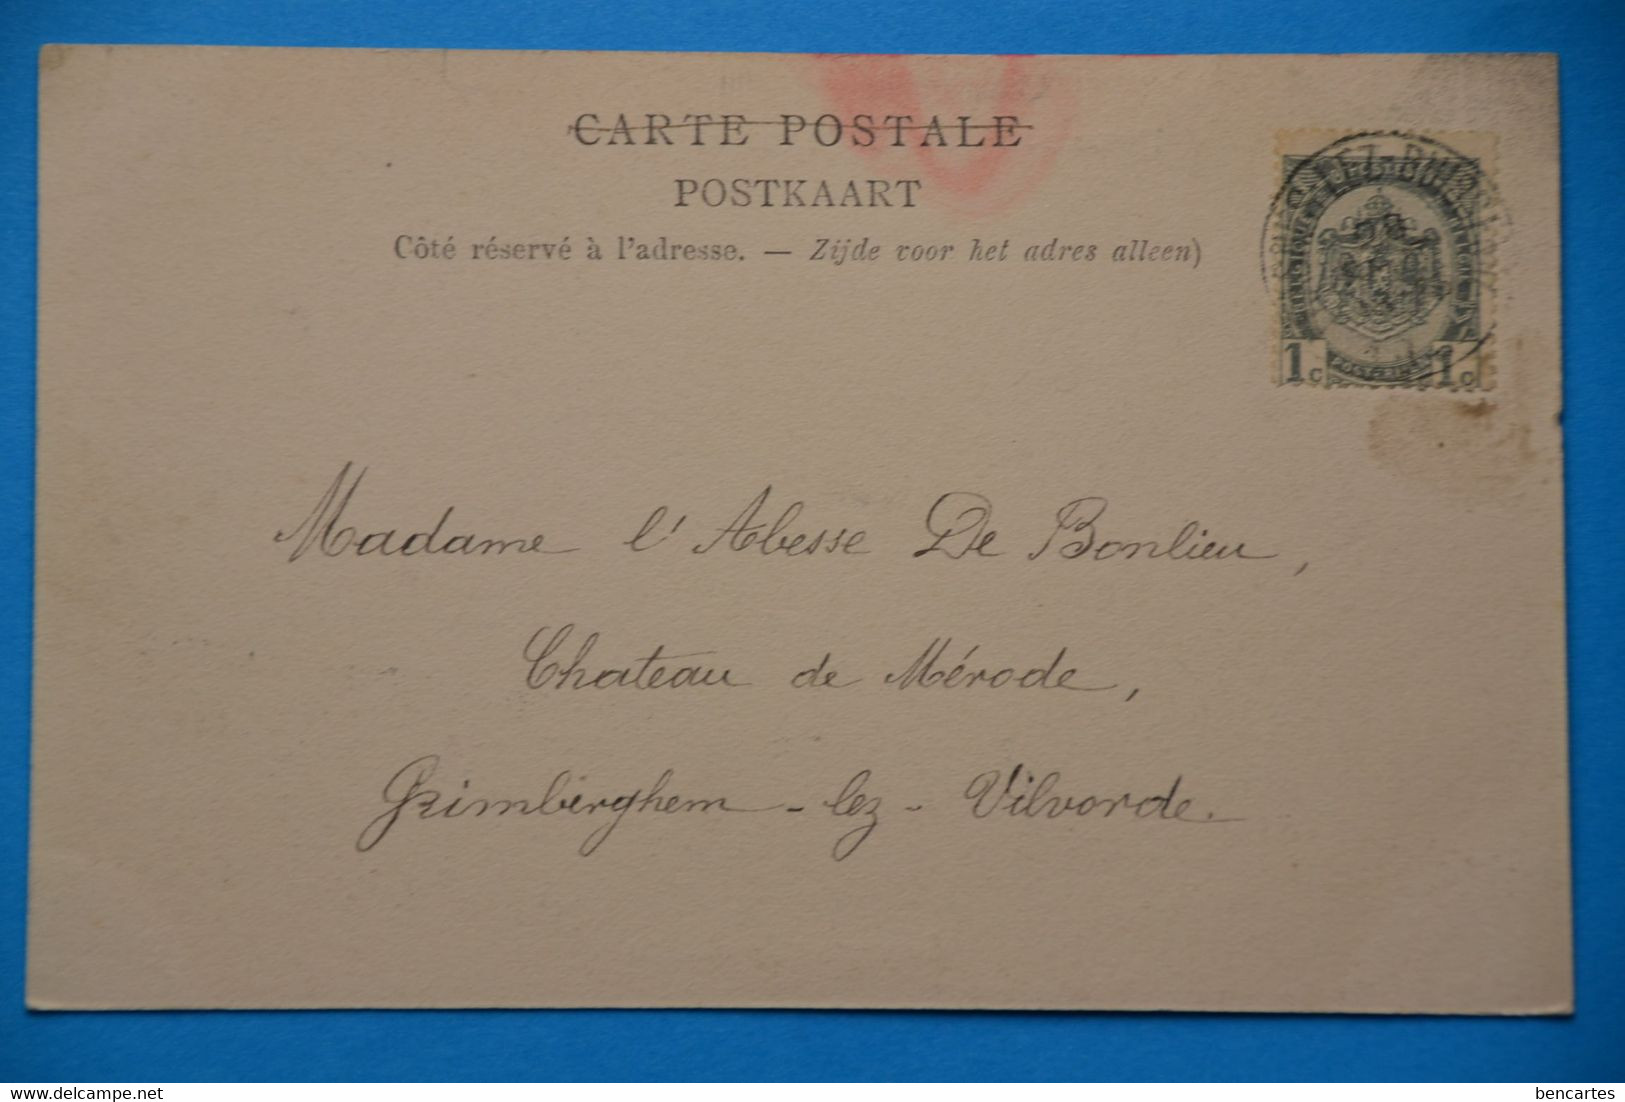 CARTE POSTALE
POSTKAART
Côté réservé à l'adresse. — Zijde voor het adres alleen)
1c 1c
Madame l'Abesse De Bonlieu,
Chateau de Mérode,
Grimberghem - lez - Vilvorde.
delcampe.net
bencartes